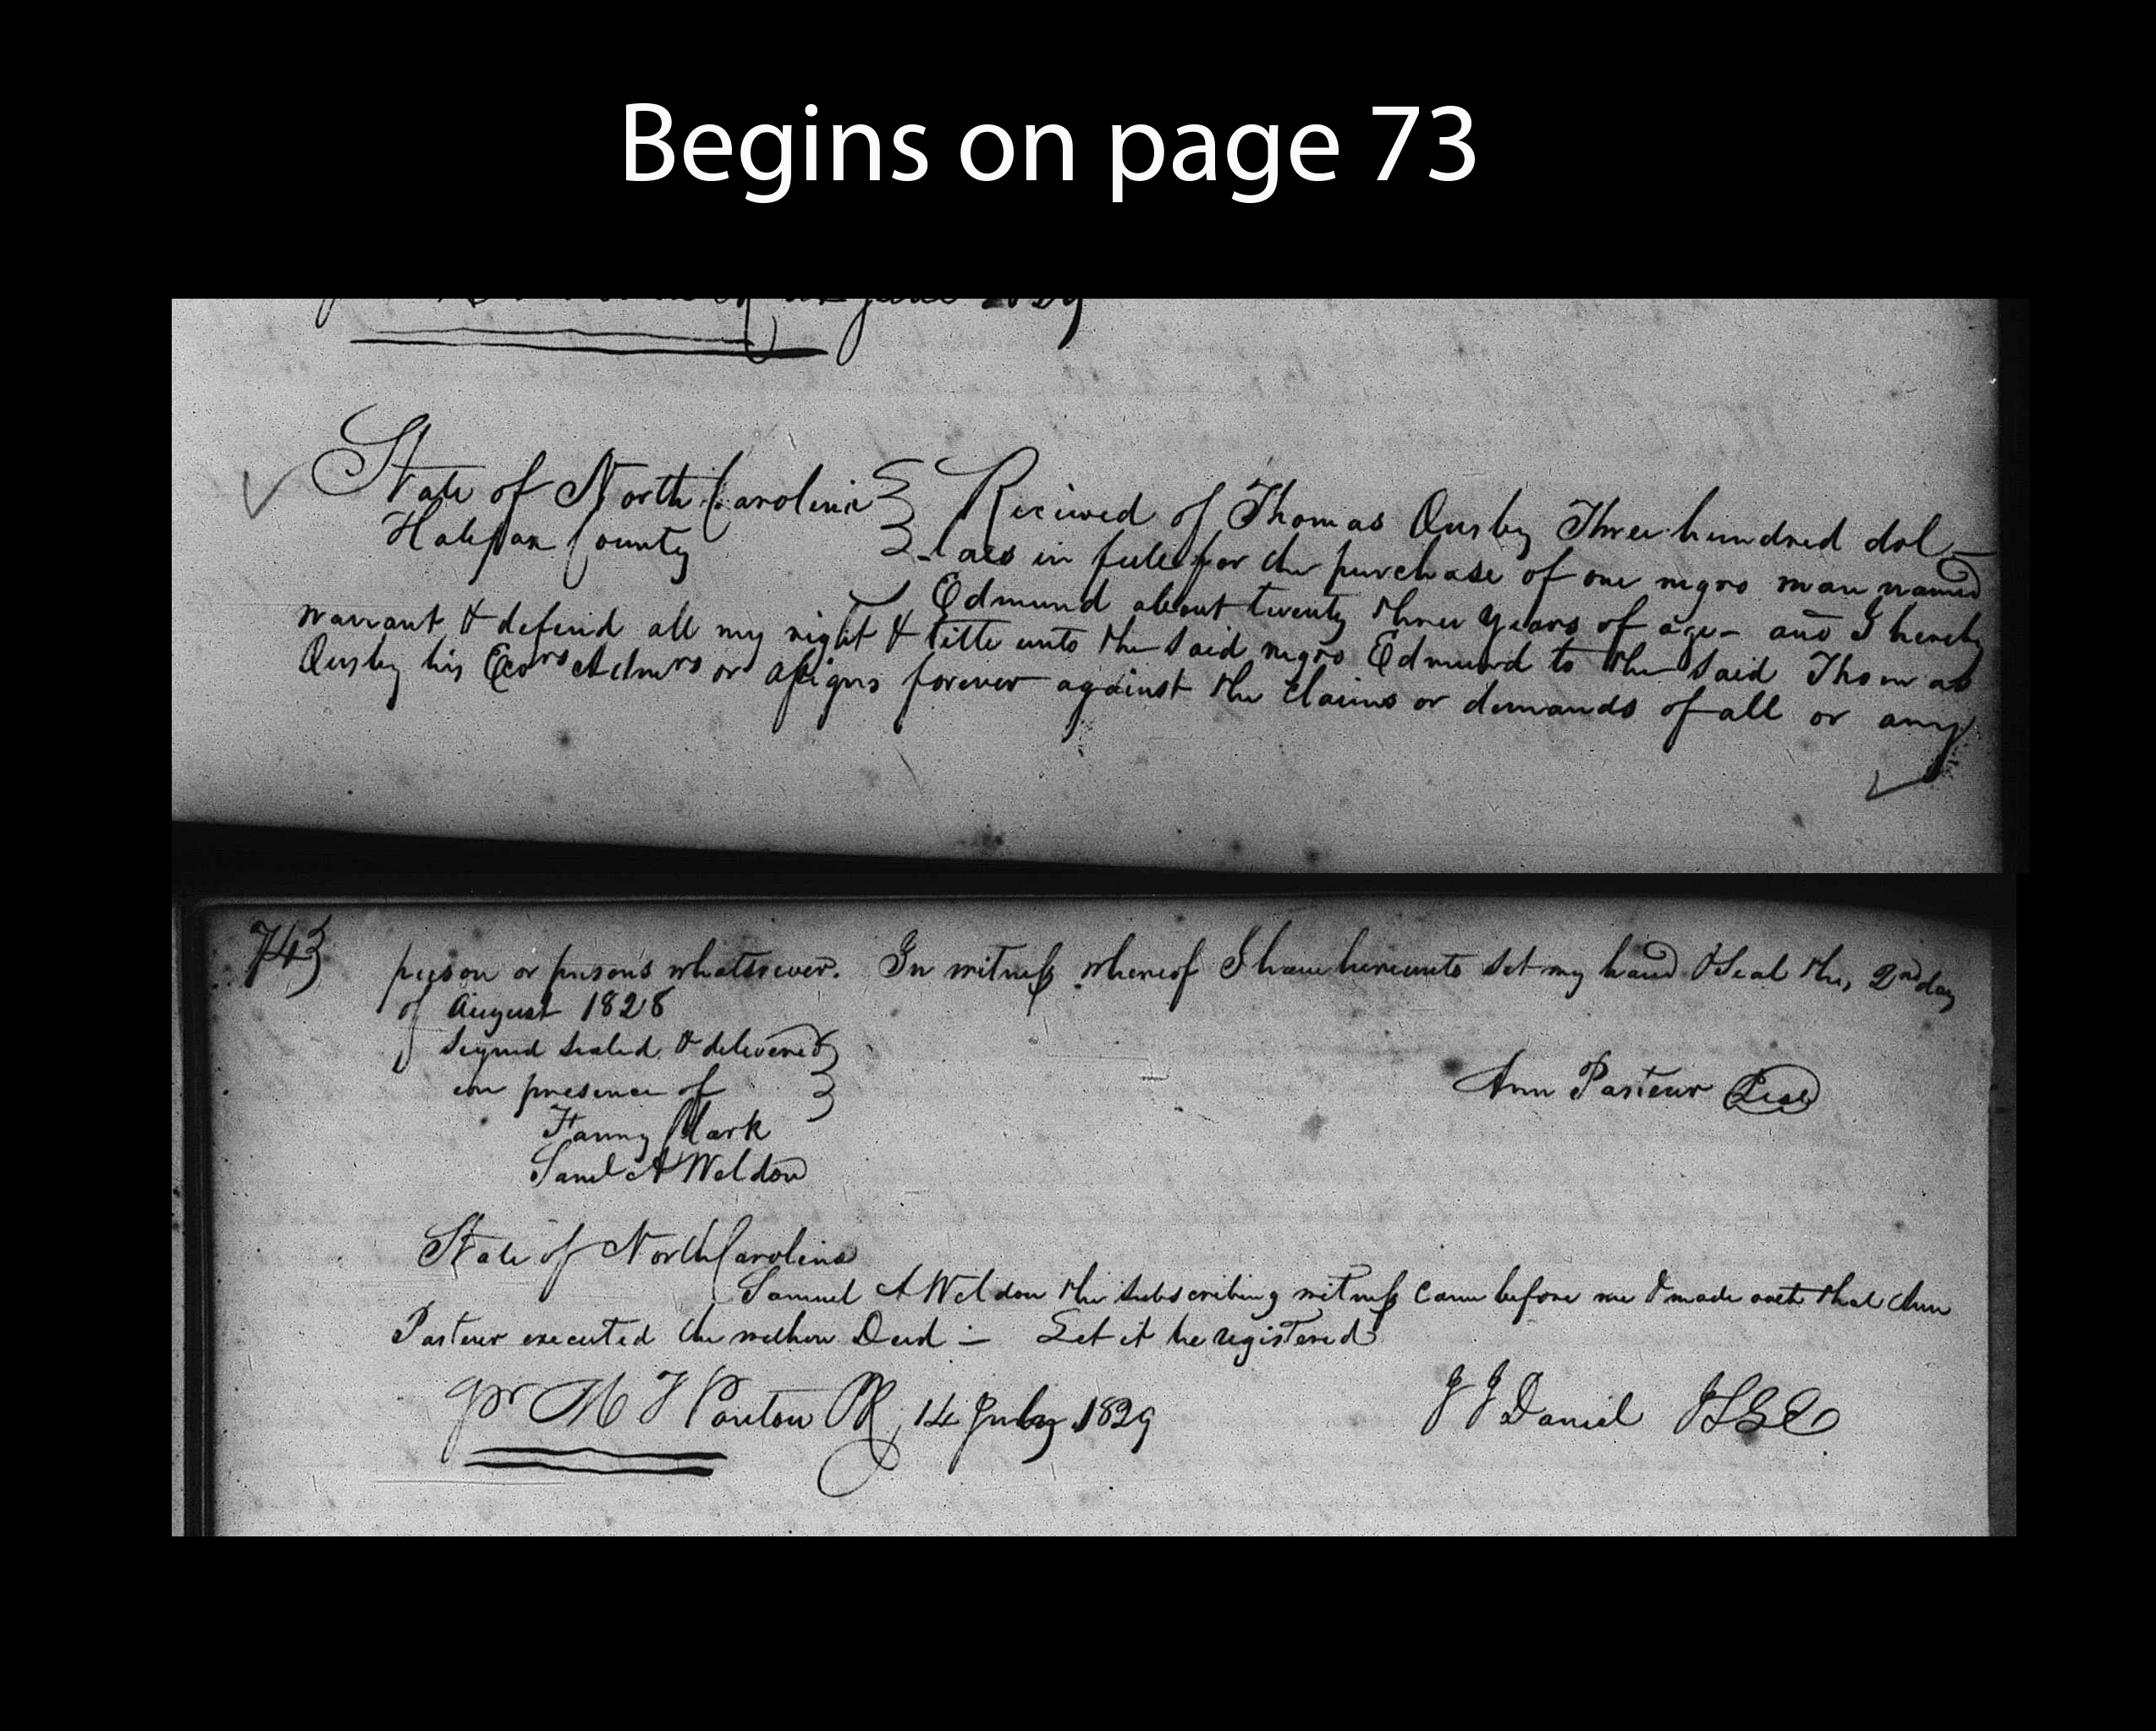 Begins on page 73
June 1829
State of North Carolina } Received of Thomas Ousby Three hundred dol-
Halifax County } -lars in full for the purchase of one negro man named
Edmund about twenty three years of age - and I hereby
warrant & defend all my right & title unto the said negro Edmund to the said Thomas
Ousby his Exors Admrs or assigns forever against the claims or demands of all or any
74
person or persons whatsoever. In witness whereof I have hereunto set my hand & seal this, 2nd day
of August 1828
signed sealed & delivered }
in presence of }
Ann Pasteur Seal
Fanny Clark
Saml A Weldon
State of North Carolina
Samuel A Weldon the subscribing witness came before me & made oath that Ann
Pasteur executed the within Deed - Let it be registered
pr M T Ponton PR, 14 July 1829
J J Daniel JSLC